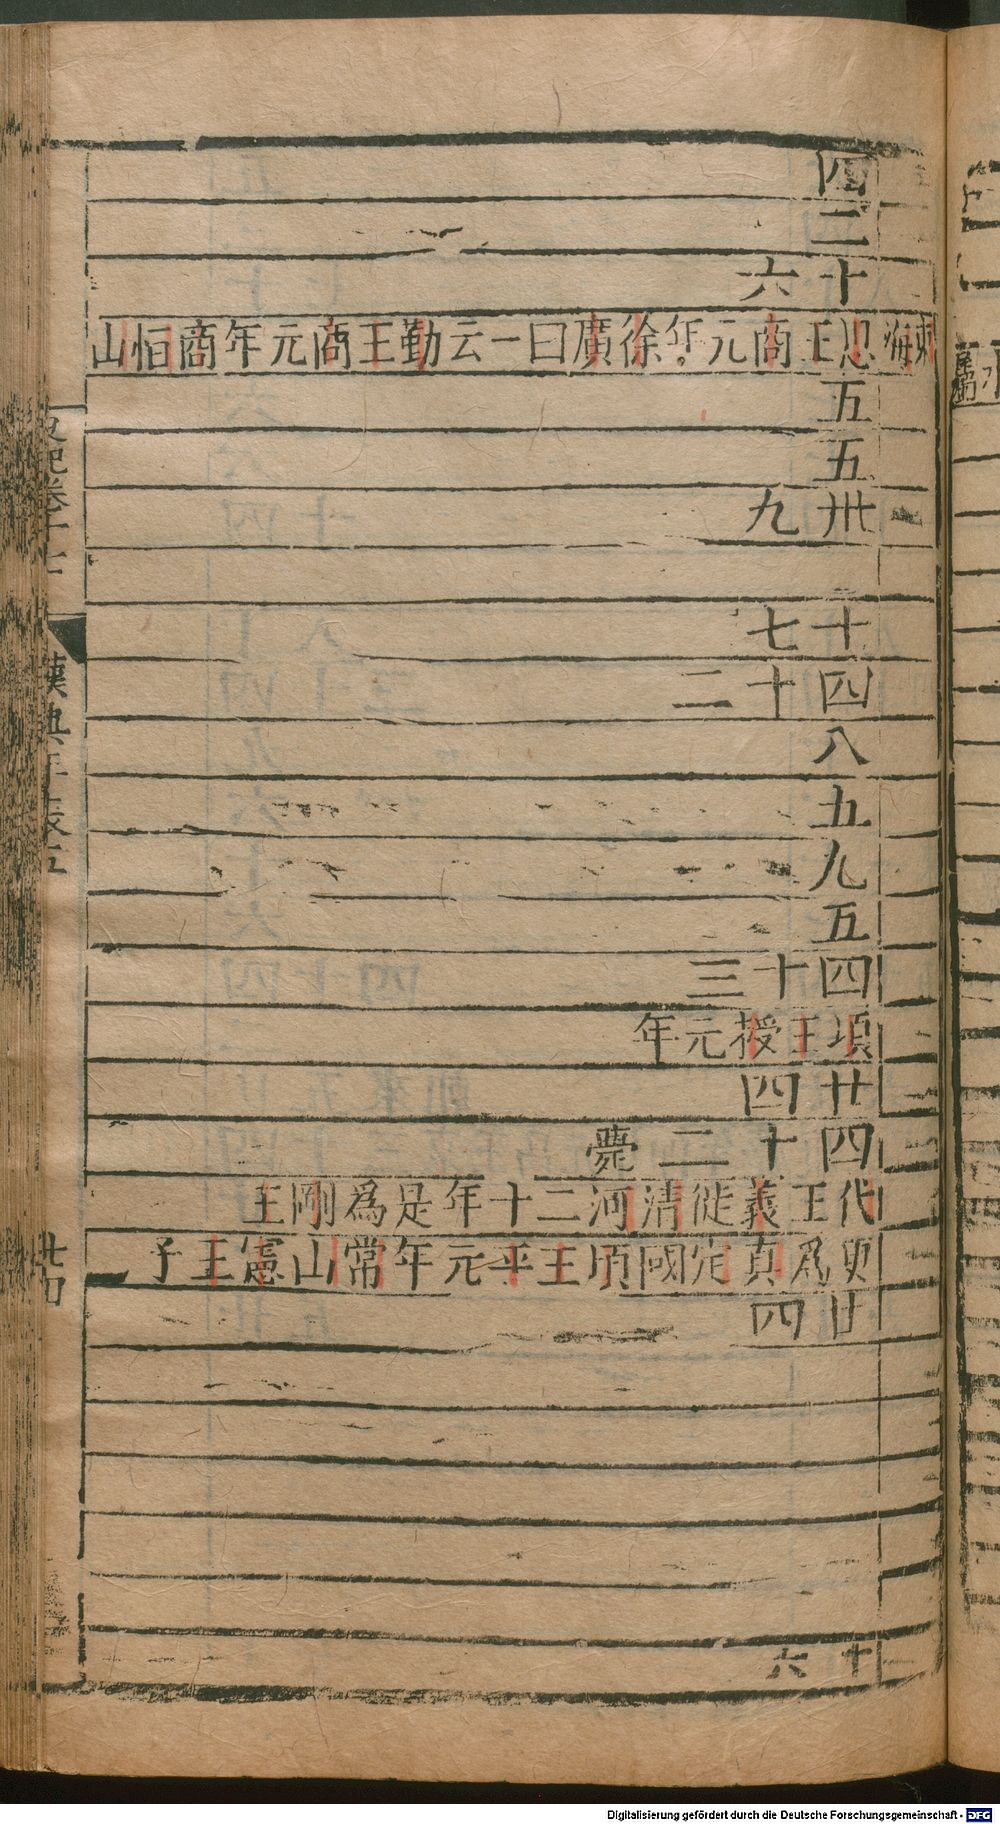 四
二
十六
東海思王商元年徐廣曰一云勤王商元年商恒山
五
五
卅九
十七
四十二
八
五
九
五
四十三
項王授元年
廿四
四十二薨
代王義徙清河二十年是爲剛王
更爲真定國頃王平元年常山憲王子
廿四
十六
漢興年表五
廿四
Digitalisierung gefördert durch die Deutsche Forschungsgemeinschaft - DFG